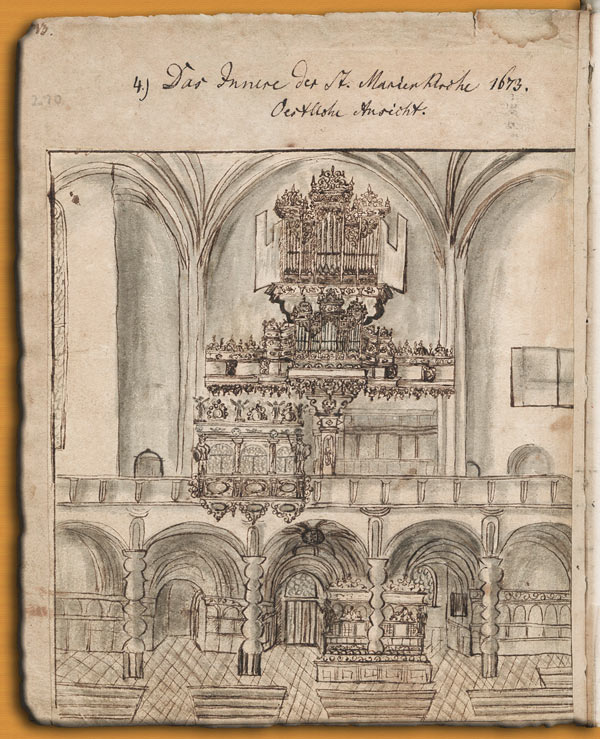 13.
4.) Das Innere der St. Marienkirche 1673.
Oestliche Ansicht.